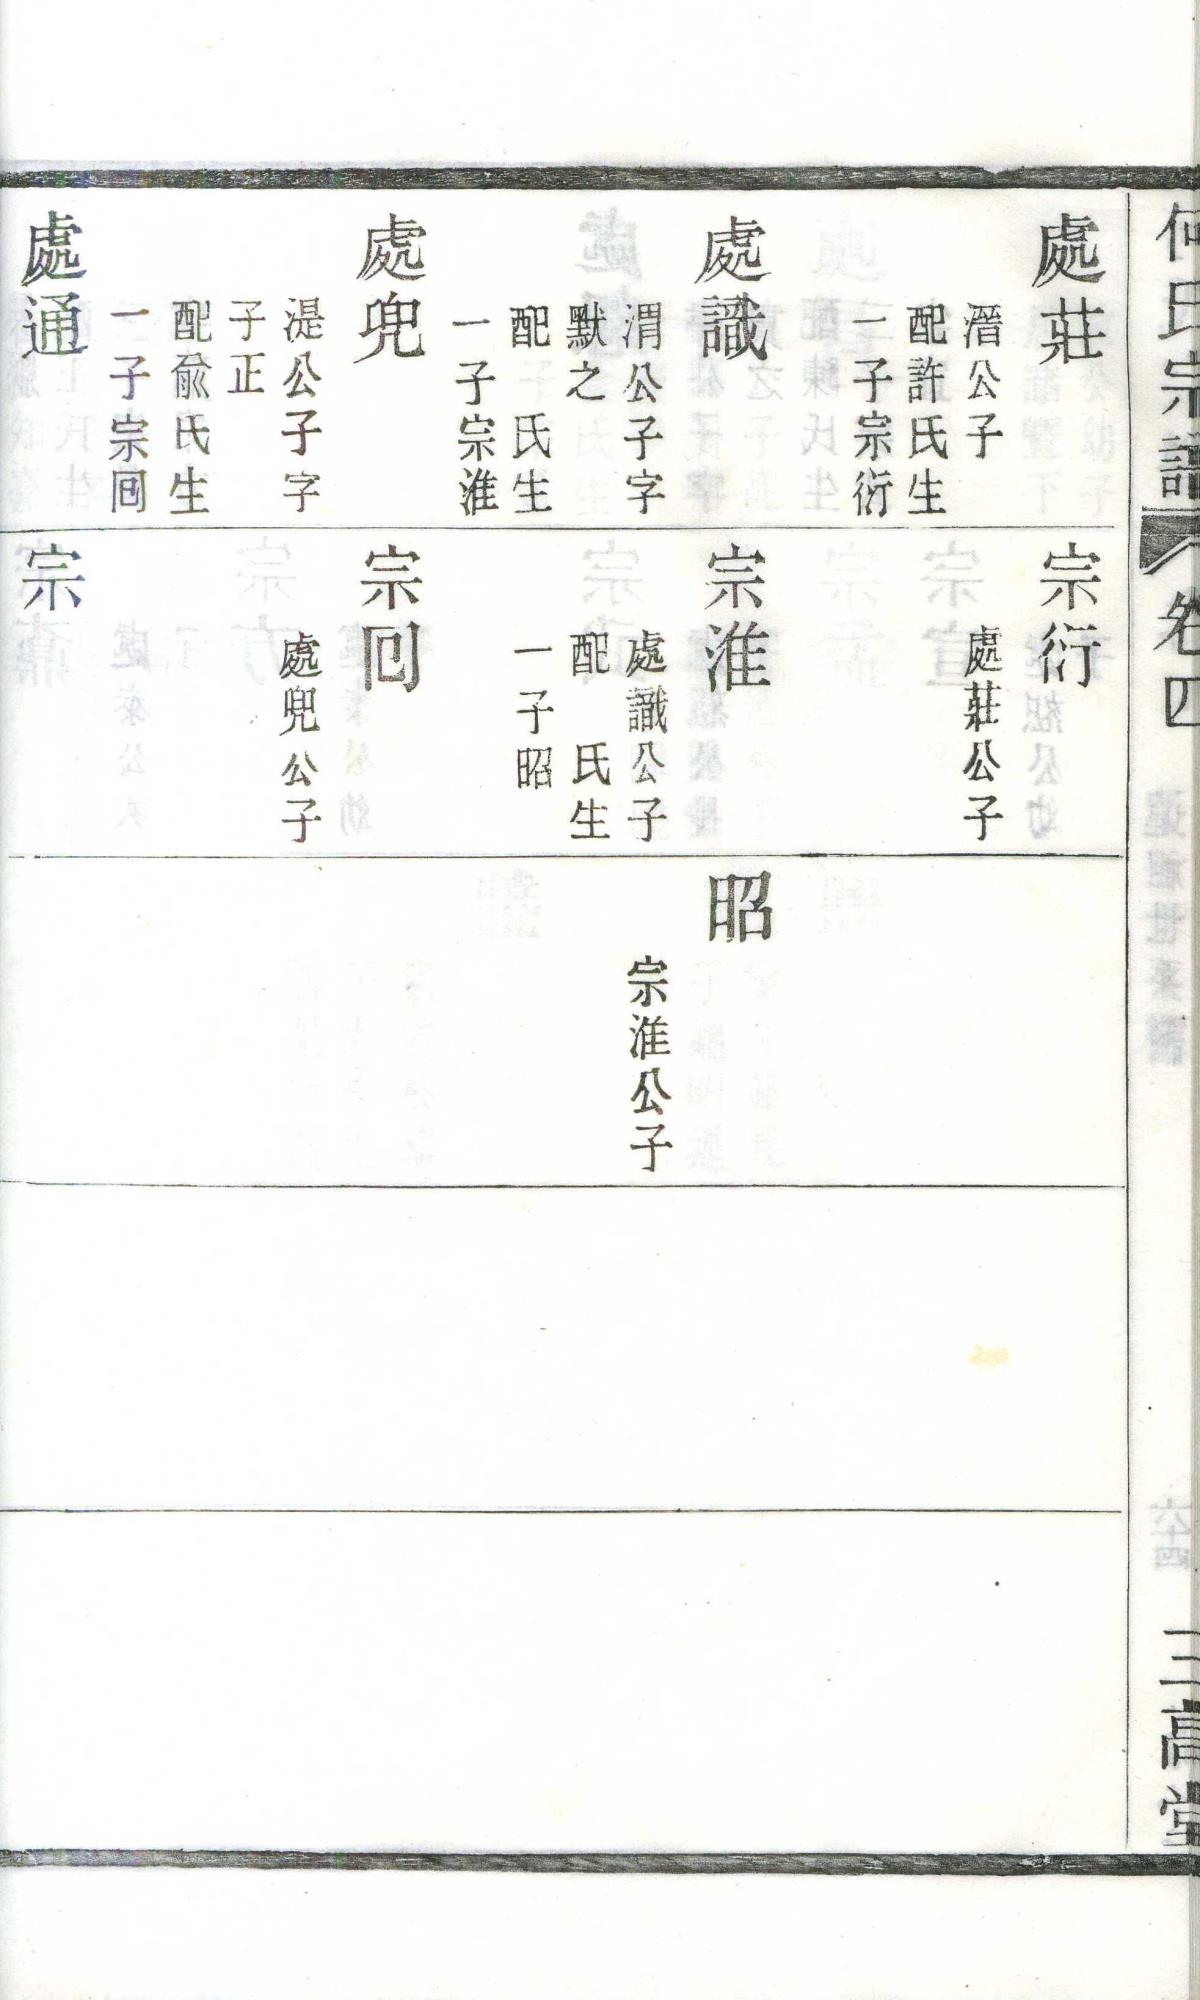 何氏宗譜
卷四
三高堂
處莊
溍公子
配許氏生
一子宗衍
處識
渭公子字
默之
配　氏生
一子宗淮
處兜
湜公子字
子正
配俞氏生
一子宗囘
處通
宗衍
處莊公子
宗淮
處識公子
配　氏生
一子昭
宗囘
處兜公子
宗
昭
宗淮公子